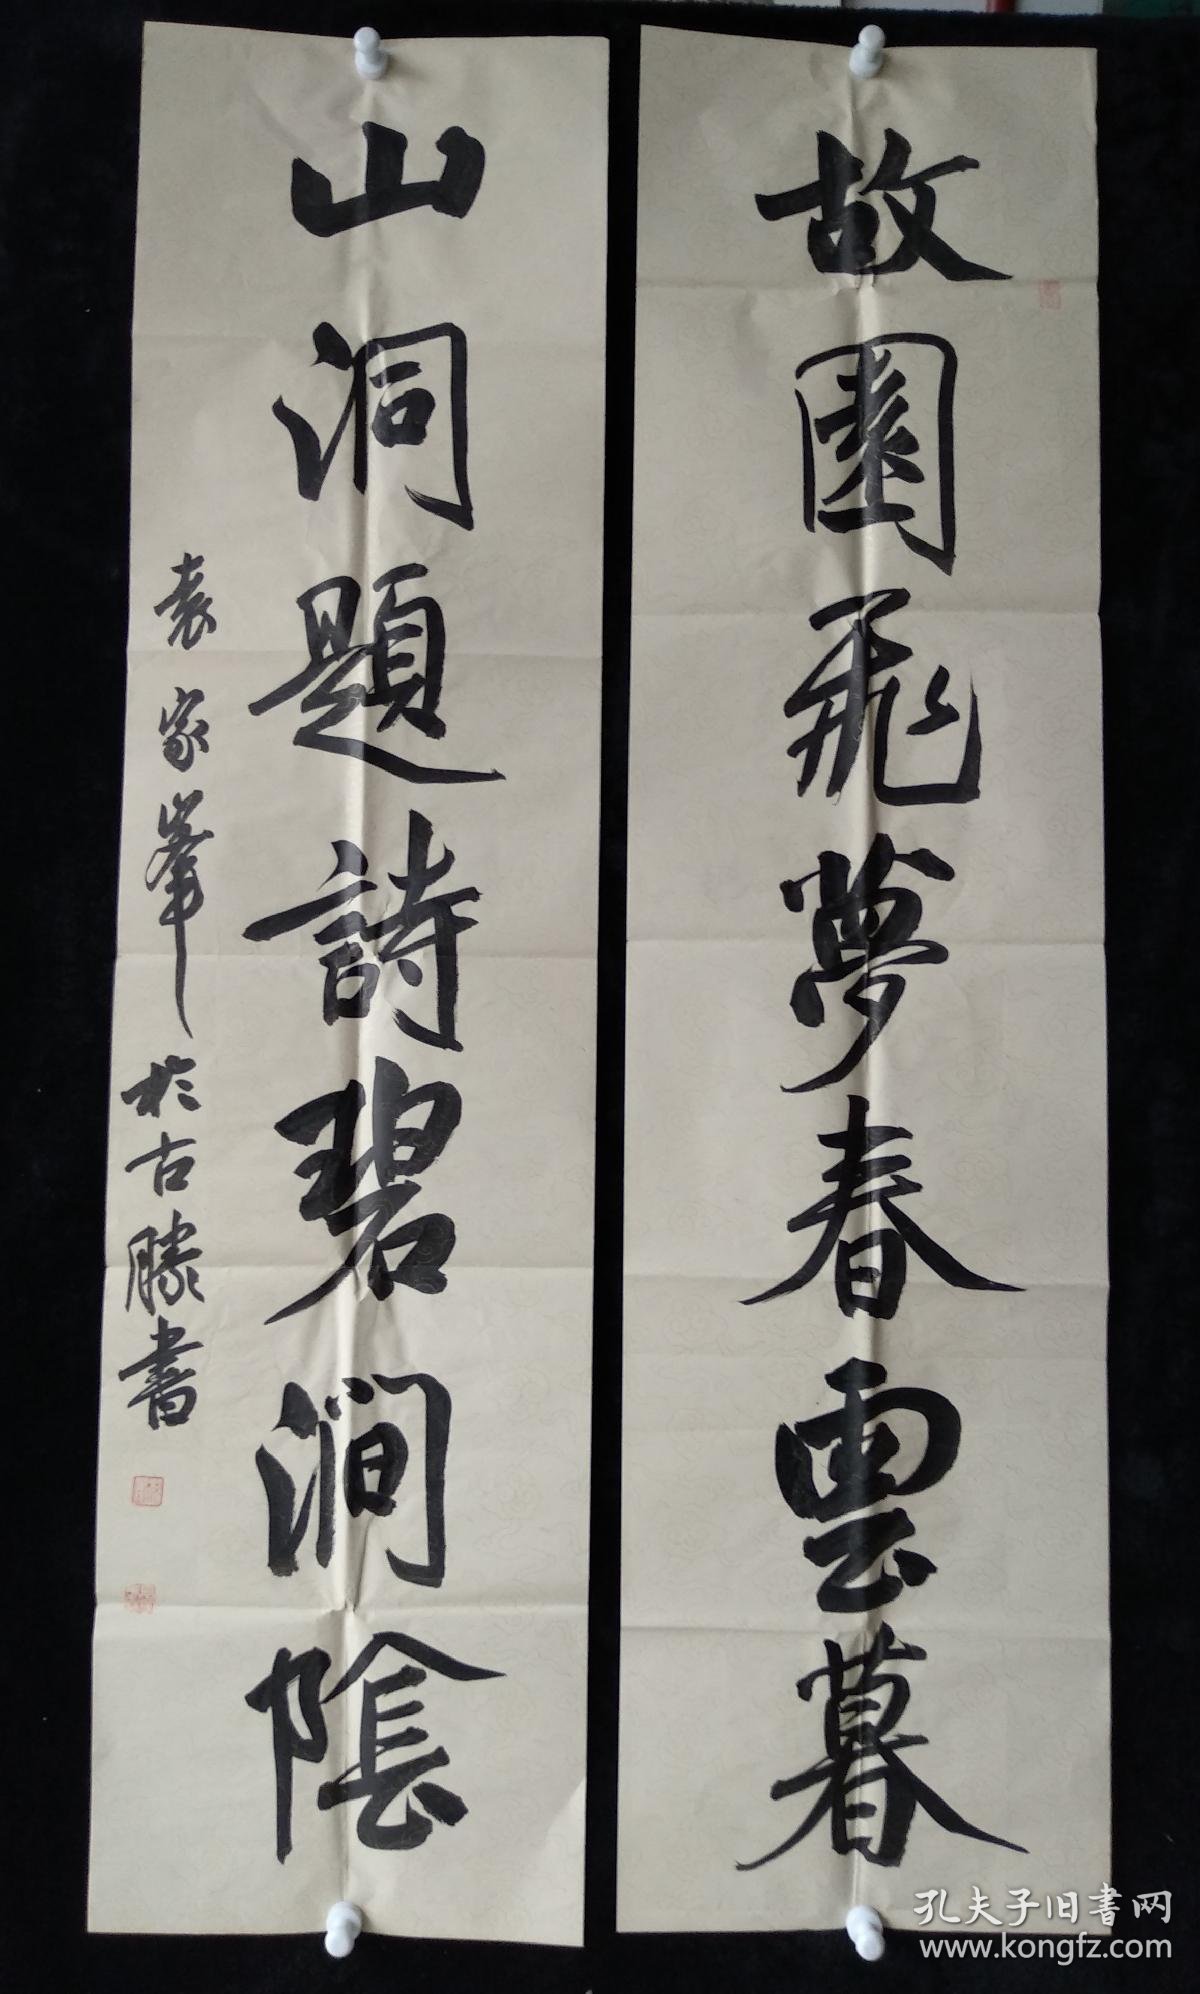 故園飛夢春雲暮
山洞題詩碧澗陰
袁家峯於古滕書
孔夫子旧書网
www.kongfz.com